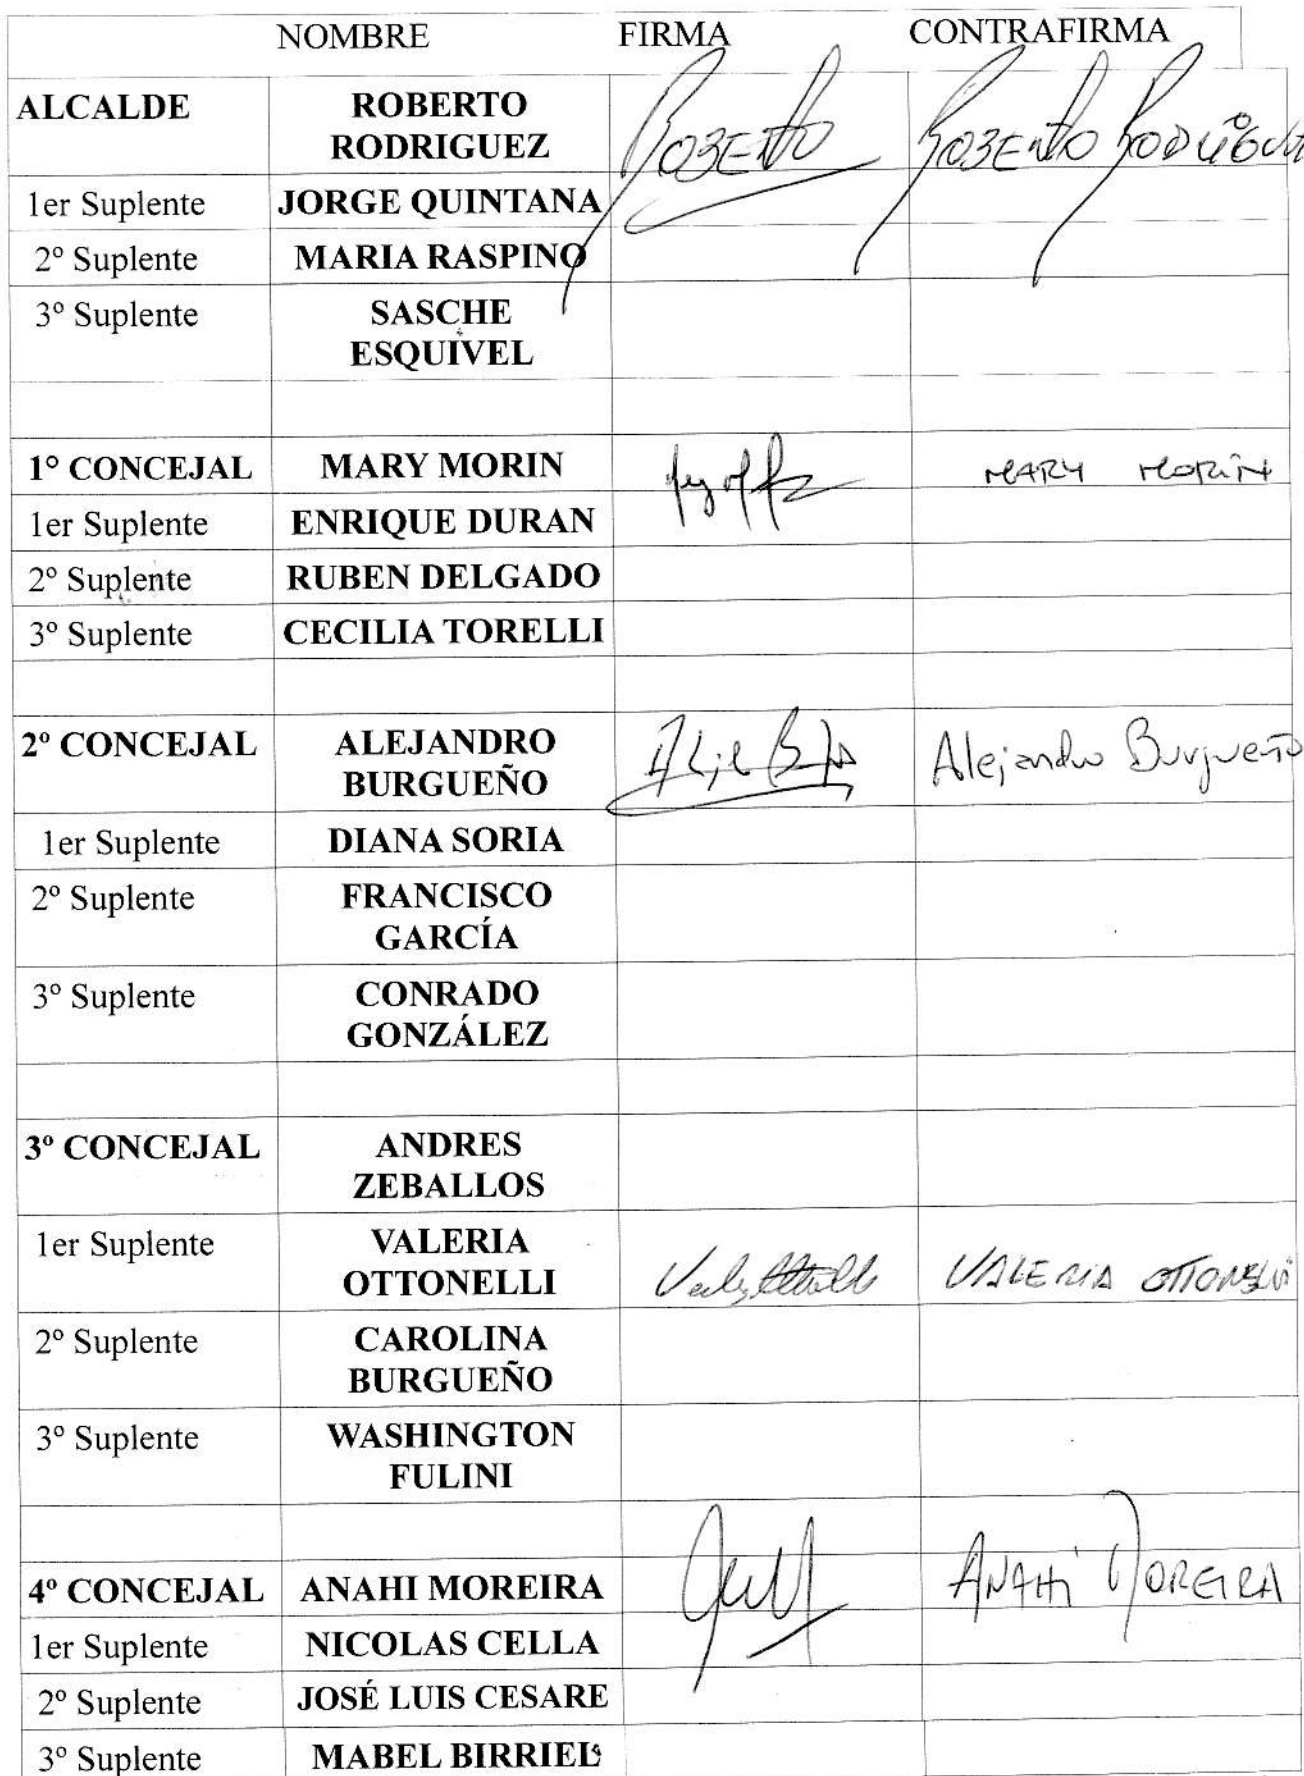 NOMBRE FIRMA CONTRAFIRMA
ALCALDE ROBERTO
RODRIGUEZ ROBERTO ROBERTO RODRIGUEZ
1er Suplente JORGE QUINTANA
2º Suplente MARIA RASPINO
3º Suplente SASCHE
ESQUIVEL
1° CONCEJAL MARY MORIN MARY MORIN
1er Suplente ENRIQUE DURAN
2º Suplente RUBEN DELGADO
3º Suplente CECILIA TORELLI
2º CONCEJAL ALEJANDRO
BURGUEÑO Alejandro Burgueño
1er Suplente DIANA SORIA
2º Suplente FRANCISCO
GARCÍA
3º Suplente CONRADO
GONZÁLEZ
3º CONCEJAL ANDRES
ZEBALLOS
1er Suplente VALERIA
OTTONELLI VALERIA OTTONELLI
2º Suplente CAROLINA
BURGUEÑO
3º Suplente WASHINGTON
FULINI
4º CONCEJAL ANAHI MOREIRA ANAHÍ MOREIRA
1er Suplente NICOLAS CELLA
2º Suplente JOSÉ LUIS CESARE
3º Suplente MABEL BIRRIEL